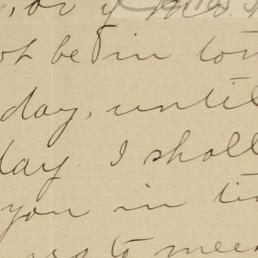 , or if Mrs.
ot be in tow
day, until
day. I shall
you in ti
to mee